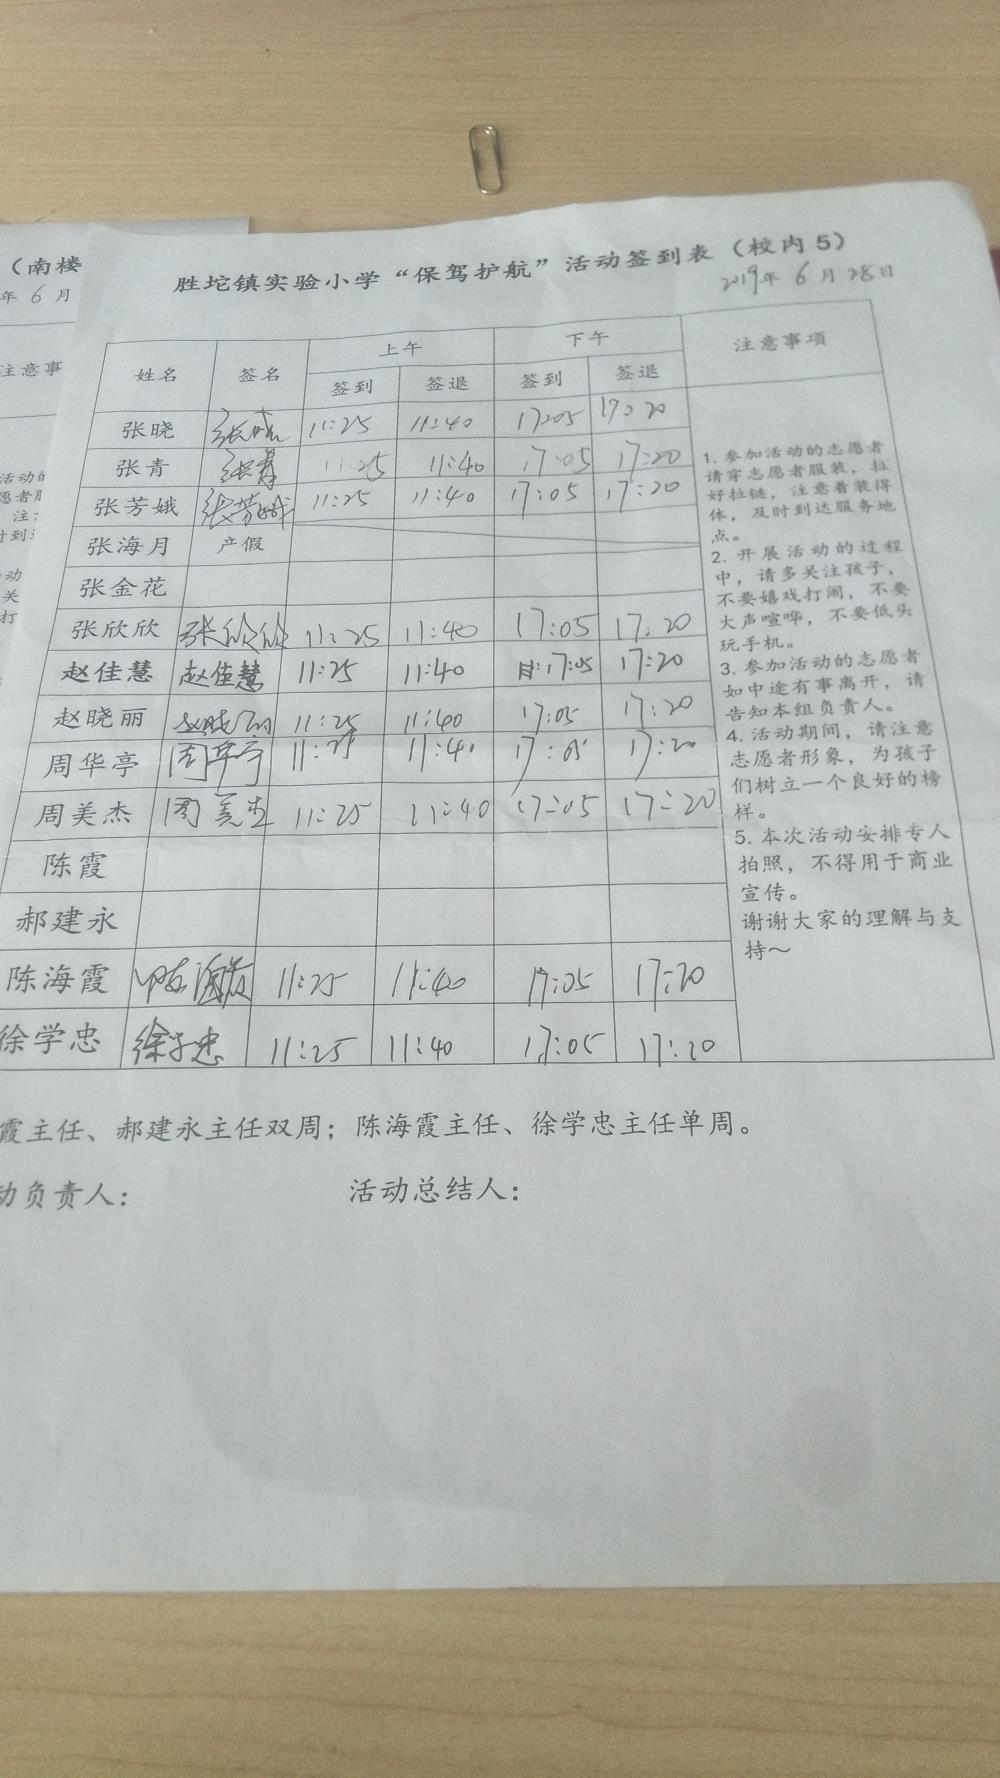 （南楼
年 6 月
注意事
胜坨镇实验小学“保驾护航”活动签到表（校内 5）
2019年 6 月 28日
姓名 签名 上午 下午 注意事项
签到 签退 签到 签退
张晓 张晓 11:25 11:40 17:05 17:20
张青 张青 11:25 11:40 17:05 17:20
张芳娥 张芳娥 11:25 11:40 17:05 17:20
张海月 产假
张金花
张欣欣 张欣欣 11:25 11:40 17:05 17:20
赵佳慧 赵佳慧 11:25 11:40 17:05 17:20
赵晓丽 赵晓丽 11:25 11:40 17:05 17:20
周华亭 周华亭 11:25 11:40 17:05 17:20
周美杰 周美杰 11:25 11:40 17:05 17:20
陈霞
郝建永
陈海霞 陈海霞 11:25 11:40 17:05 17:20
徐学忠 徐学忠 11:25 11:40 17:05 17:20
1. 参加活动的志愿者
请穿志愿者服装，拉
好拉链，注意着装得
体，及时到达服务地
点。
2. 开展活动的过程
中，请多关注孩子，
不要嬉戏打闹，不要
大声喧哗，不要低头
玩手机。
3. 参加活动的志愿者
如中途有事离开，请
告知本组负责人。
4. 活动期间，请注意
志愿者形象，为孩子
们树立一个良好的榜
样。
5. 本次活动安排专人
拍照，不得用于商业
宣传。
谢谢大家的理解与支
持～
霞主任、郝建永主任双周；陈海霞主任、徐学忠主任单周。
动负责人： 活动总结人：